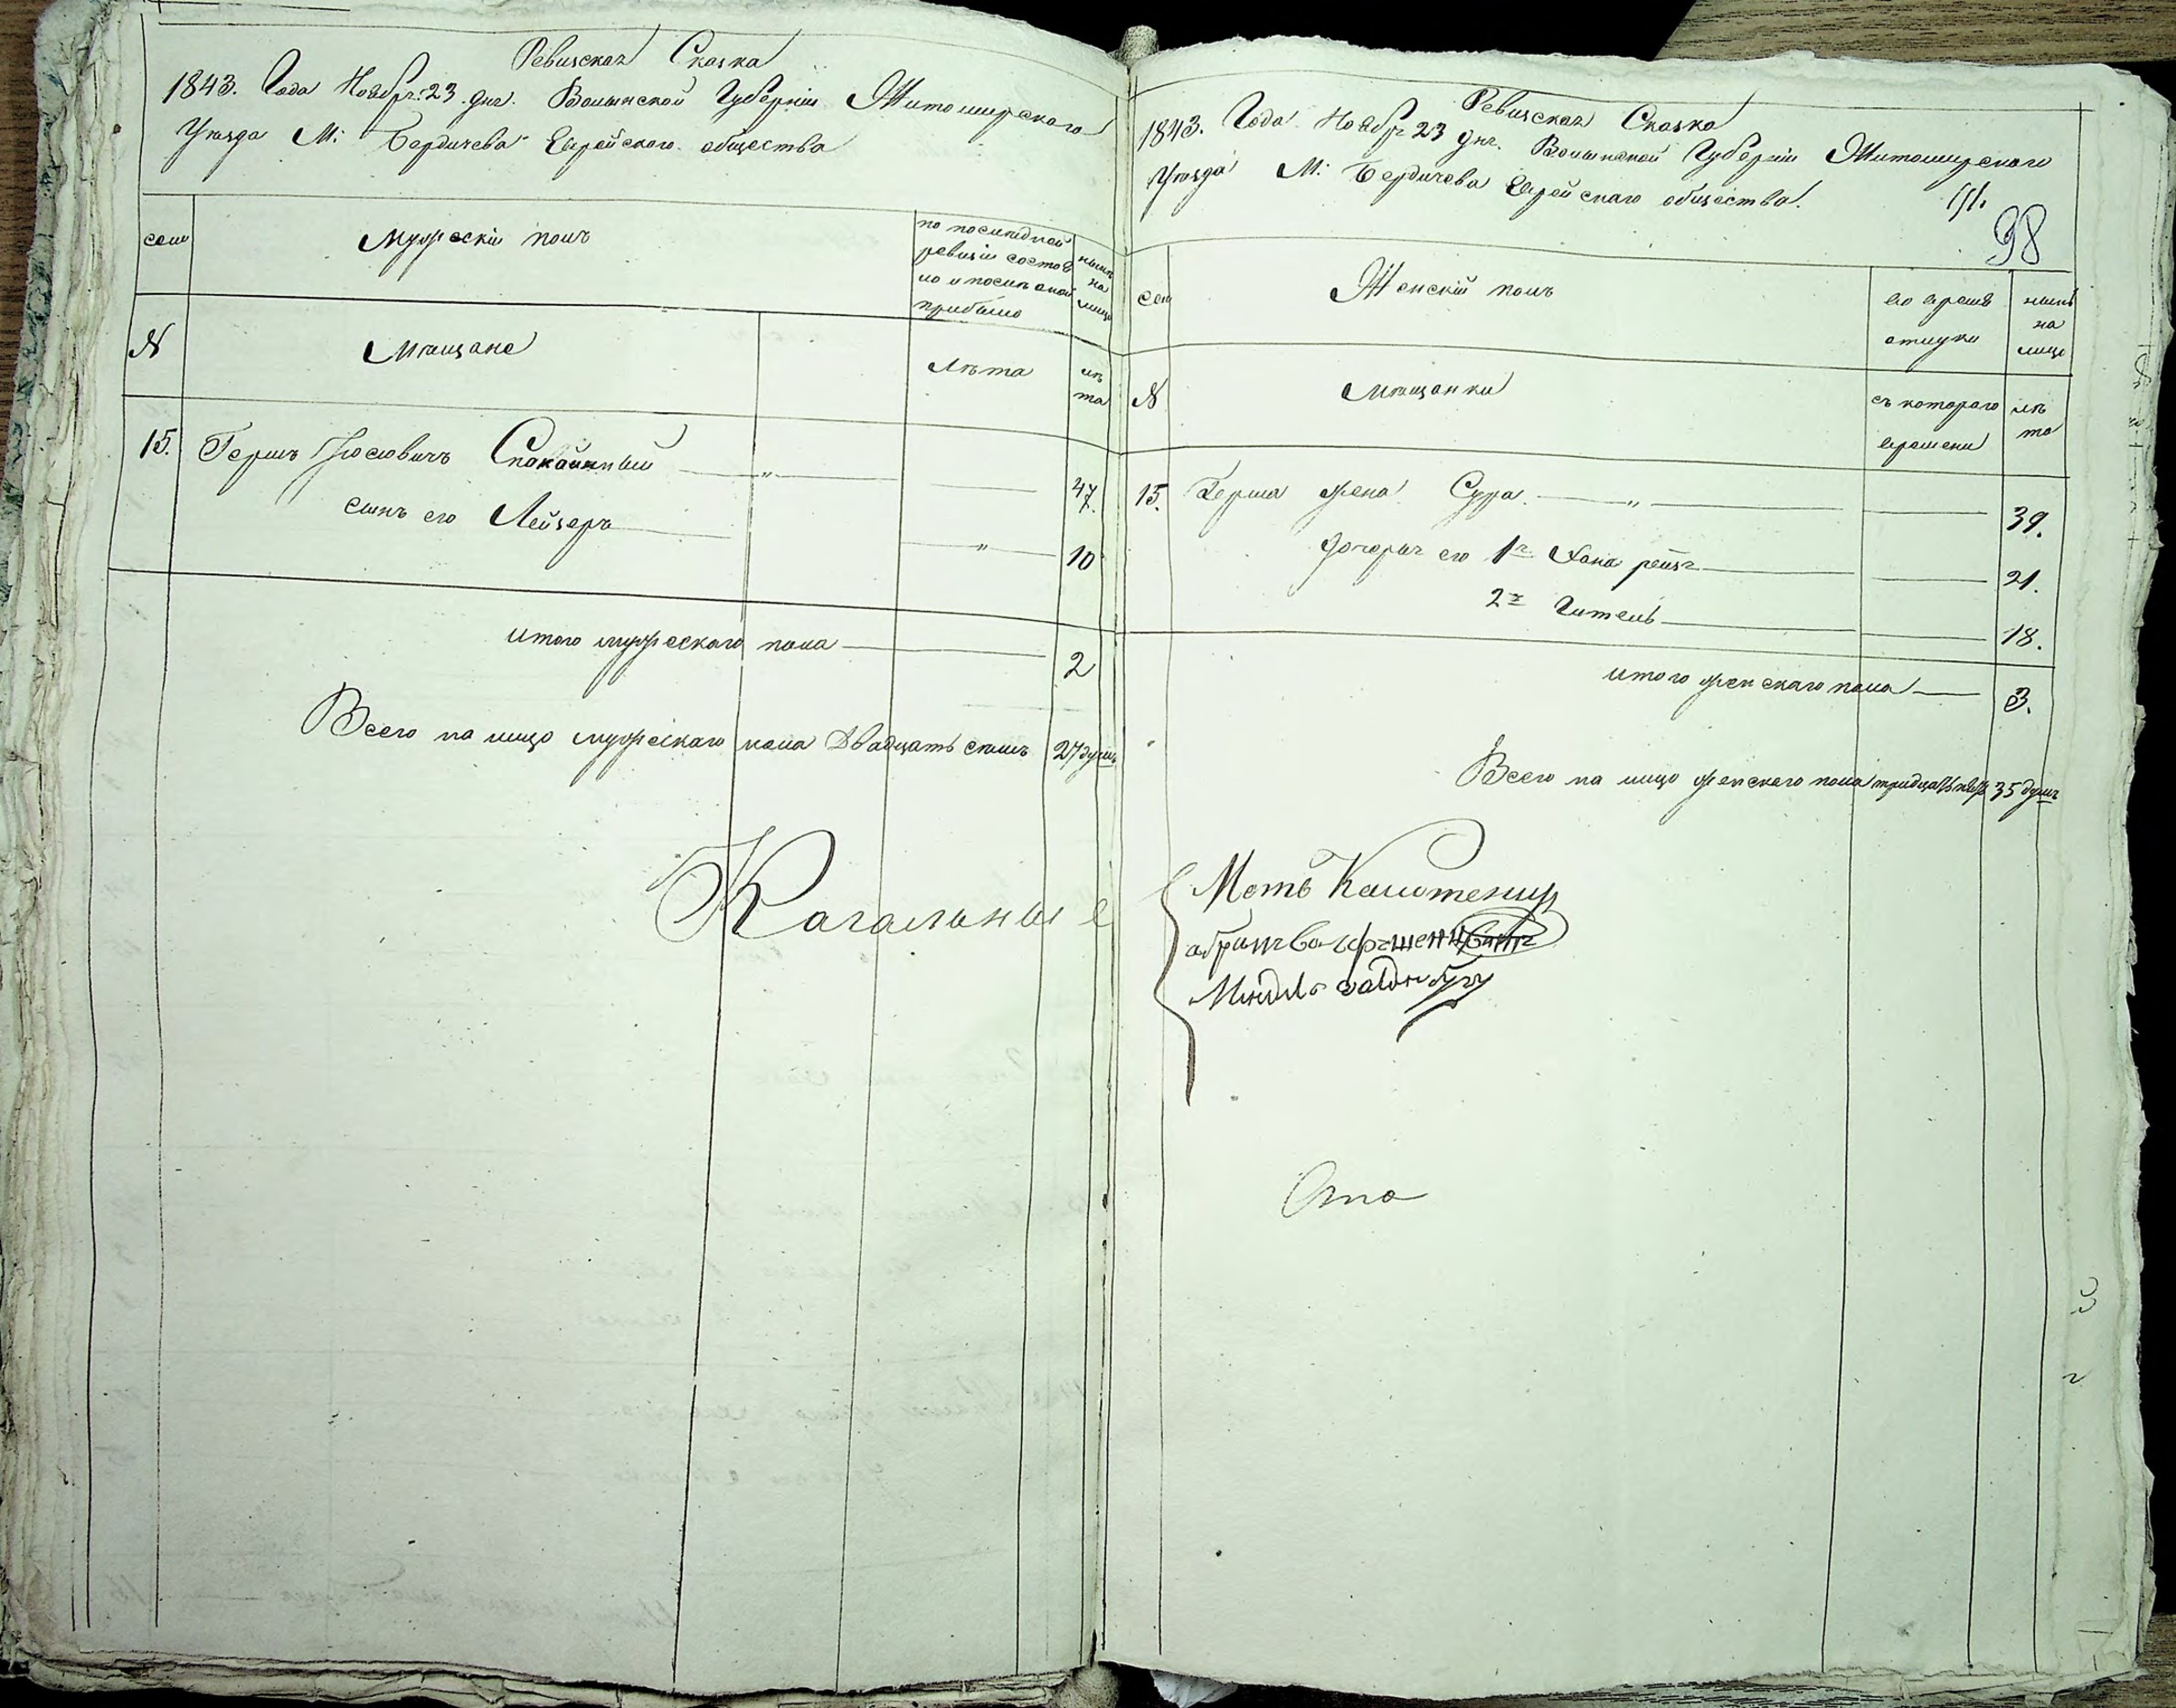 Ревизская Сказка
1843. Года Ноябр: 23 дня. Волынской Губерніи Житомирскаго
Уѣзда М: Бердичева Еврейскаго общества
семи
Мужескій полъ
по послѣдней
ревизіи состоя
ло и послѣ оной
прибыло
нынѣ
на
лицо
N
Мѣщане
Лѣта
лѣ
та
15. Гершъ Іосіовичъ Спокойный — „ — 47.
сынъ его Лейзеръ — „ — 10
итого мужескаго пола — 2
Всего на лицо мужескаго пола Двадцать семь 27 душъ
Кагальные
Ревизская Сказка
1843. Года Ноябр 23 дня. Волынской Губерніи Житомирскаго
Уѣзда М: Бердичева Еврейскаго общества.
98
сем
Женскій полъ
во время
отлучки
нынѣ
на
лицо
N
Мѣщанки
съ котораго
времени
лѣ
та
15. Герша жена Сура — „ — 39.
дочери его 1я Хана рейзя — 21.
2я Гитель — 18.
итого женскаго пола — 3.
Всего на лицо женскаго пола тридцать пять 35 душъ
Мендель